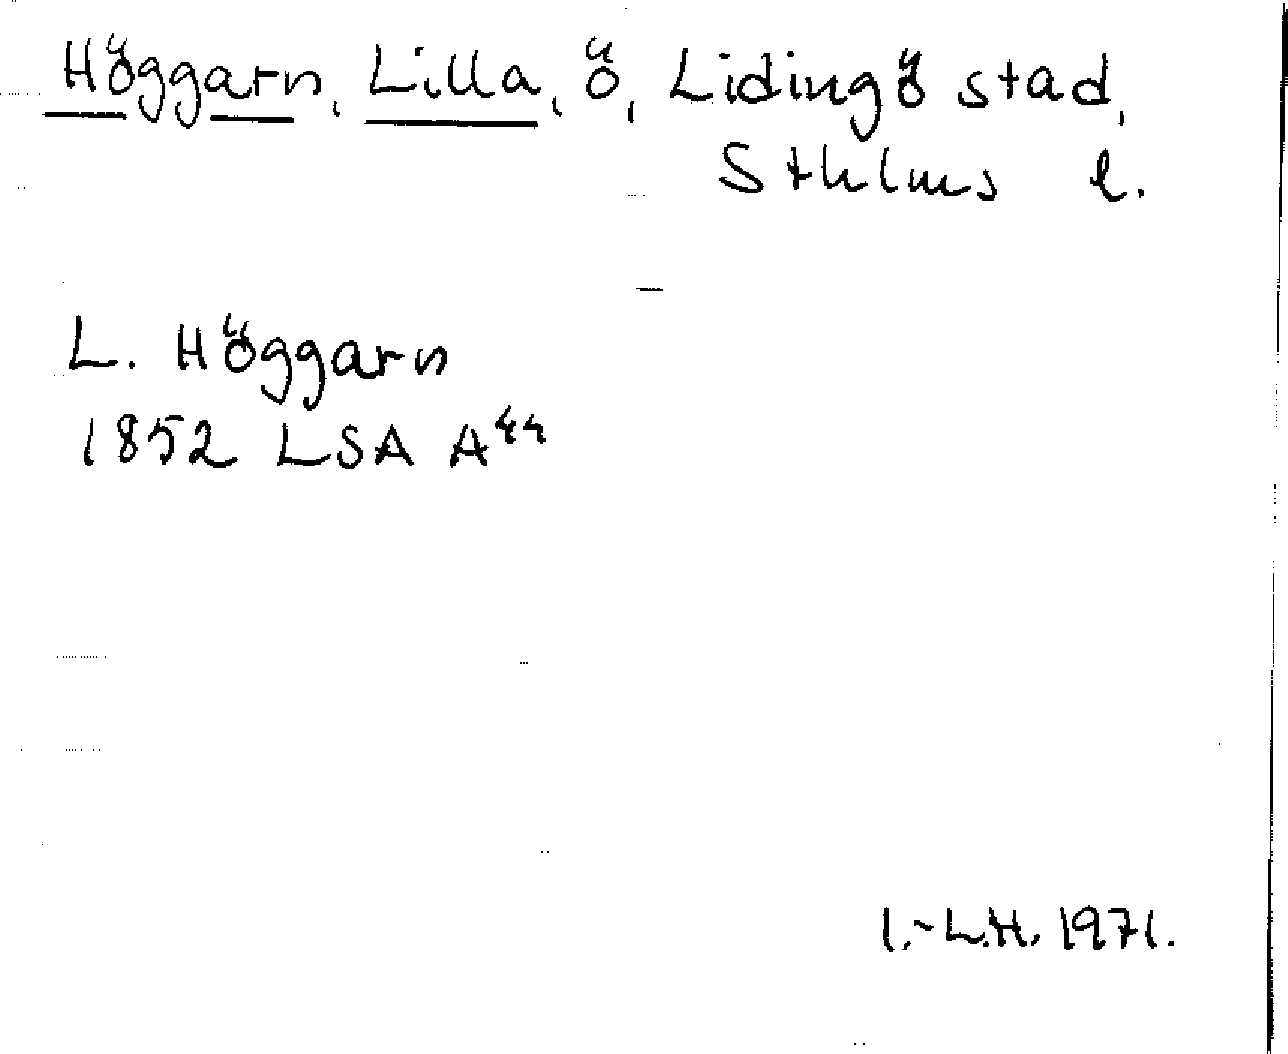 Höggarn, Lilla, ö, Lidingö stad,
Sthlms l.
L. Höggarn
1852 LSA A44
I.-L.H. 1971.